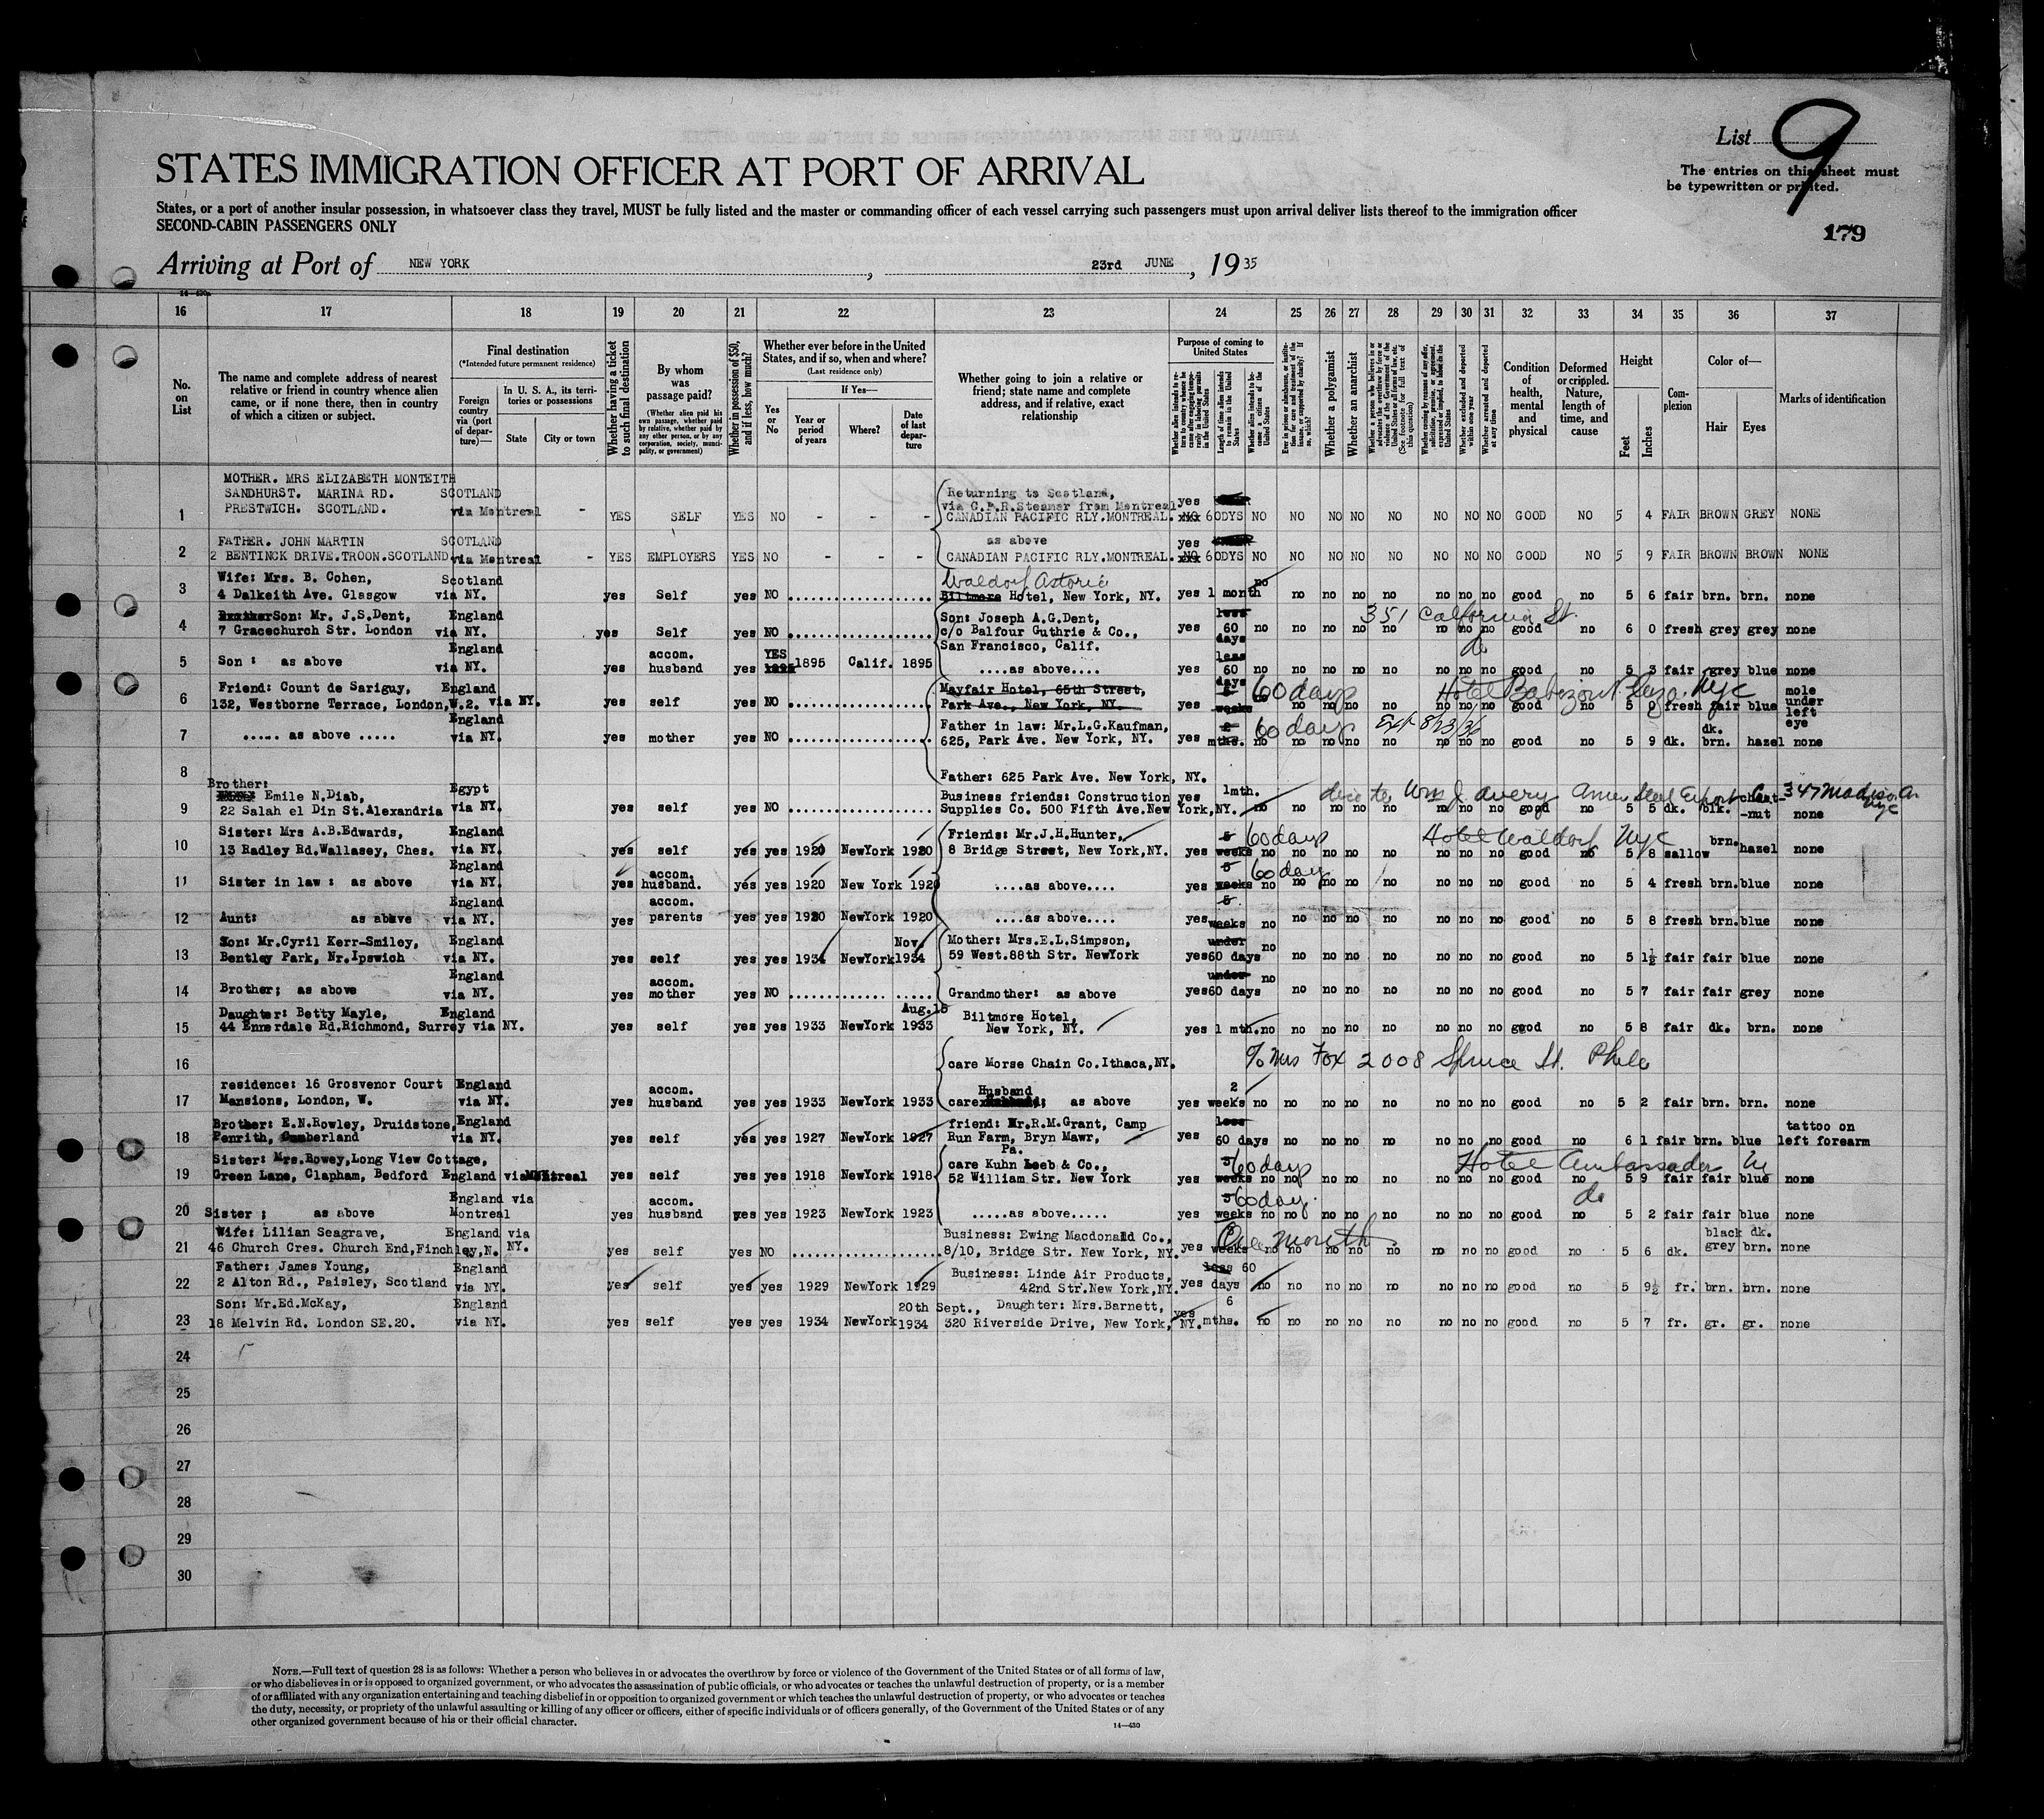 List 9
The entries on this sheet must
be typewritten or printed.
STATES IMMIGRATION OFFICER AT PORT OF ARRIVAL
States, or a port of another insular possession, in whatsoever class they travel, MUST be fully listed and the master or commanding officer of each vessel carrying such passengers must upon arrival deliver lists thereof to the immigration officer
SECOND-CABIN PASSENGERS ONLY
179
Arriving at Port of NEW YORK, 23rd JUNE, 1935
16 17 18 19 20 21 22 23 24 25 26 27 28 29 30 31 32 33 34 35 36 37
No. on List
The name and complete address of nearest
relative or friend in country whence alien
came, or if none there, then in country
of which a citizen or subject.
Final destination
(*Intended future permanent residence)
Foreign country via (port of departure)—
In U. S. A., its territories or possessions
State
City or town
Whether having a ticket to such final destination
By whom was passage paid?
(Whether alien paid his own passage, whether paid by relative, whether paid by any other person, or by any corporation, society, municipality, or government)
Whether in possession of $50, and if less, how much?
Whether ever before in the United States, and if so, when and where?
(Last residence only)
Yes or No
If Yes—
Year or period of years
Where?
Date of last departure
Whether going to join a relative or
friend; state name and complete
address, and if relative, exact
relationship
Purpose of coming to United States
Length of time alien intends to remain in the United States
Whether alien intends to become a citizen of the United States
Whether a polygamist
Whether an anarchist
Whether excluded and deported within one year
Whether arrested and deported at any time
Condition of health, mental and physical
Deformed or crippled. Nature, length of time, and cause
Height
Feet
Inches
Complexion
Color of—
Hair
Eyes
Marks of identification
MOTHER. MRS ELIZABETH MONTEITH
SANDHURST. MARINA RD. SCOTLAND Returning to Scotland,
PRESTWICH. SCOTLAND. via Montreal via C.P.R.Steamer from Montreal yes
1 - YES SELF YES NO - - - CANADIAN PACIFIC RLY.MONTREAL. NO 60DYS NO NO NO NO NO NO NO NO GOOD NO 5 4 FAIR BROWN GREY NONE
FATHER. JOHN MARTIN SCOTLAND as above yes
2 2 BENTINCK DRIVE.TROON.SCOTLAND via Montreal - YES EMPLOYERS YES NO - - - CANADIAN PACIFIC RLY.MONTREAL. NO 60DYS NO NO NO NO NO NO NO NO GOOD NO 5 9 FAIR BROWN BROWN NONE
Wife: Mrs. B. Cohen, Scotland Waldorf Astoria no
3 4 Dalkeith Ave. Glasgow via NY. yes Self yes NO Biltmore Hotel, New York, NY. yes 1 month no no no no no no no good no 5 6 fair brn. brn. none
Brother Son: Mr. J.S.Dent, England Son: Joseph A.G.Dent, less 351 California St.
4 7 Gracechurch Str. London via NY. yes Self yes NO c/o Balfour Guthrie & Co., yes 60 days no no no no no no no no good no 6 0 fresh grey grey none
England accom. YES San Francisco, Calif. less do
5 Son: as above via NY. yes husband yes 1895 1895 Calif. 1895 ....as above.... yes 60 days no no no no no no no no good no 5 3 fair grey blue none
Friend: Count de Sariguy, England Mayfair Hotel, 65th Street, 60 days Hotel Barbizon Plaza. NYC mole
6 132, Westborne Terrace, London,W.2. via NY. yes self yes NO Park Ave., New York, NY. yes weeks no no no no no no no good no 5 0 fresh fair blue under left eye
England Father in law: Mr.L.G.Kaufman, 2 60 days Ext 8/23/36 dk.
7 ..... as above ..... via NY. yes mother yes NO 625, Park Ave. New York, NY. yes mths. no no no no no no no no good no 5 9 dk. brn. hazel none
8 Father: 625 Park Ave. New York, NY.
Brother: Emile N.Diab, Egypt Business friends: Construction yes 1mth. Wm J. Avery Amer Steel Export Co 347 Madison Av NYC
9 22 Salah el Din St.Alexandria via NY. yes self yes NO Supplies Co. 500 Fifth Ave.New York,NY. no no no no no no no no good no 5 5 dk. blk. chest-nut none
Sister: Mrs A.B.Edwards, England Friends: Mr.J.H.Hunter, 5 60 days Hotel Waldorf NYC
10 13 Radley Rd.Wallasey, Ches. via NY. yes self yes yes 1920 NewYork 1920 8 Bridge Street, New York,NY. yes weeks no no no no no no no no good no 5 8 sallow brn. hazel none
England accom. 5 60 days
11 Sister in law: as above via NY. yes husband. yes yes 1920 New York 1920 ....as above.... yes weeks no no no no no no no no good no 5 4 fresh brn. blue none
England accom. 5
12 Aunt: as above via NY. yes parents yes yes 1920 NewYork 1920 ....as above.... yes weeks no no no no no no no no good no 5 8 fresh brn. blue none
Son: Mr.Cyril Kerr-Smiley, England Nov. Mother: Mrs.E.L.Simpson, under no
13 Bentley Park, Nr.Ipswich via NY. yes self yes yes 1934 NewYork 1934 59 West.88th Str. NewYork yes 60 days no no no no no no no good no 5 1½ fair fair blue none
England accom. under no
14 Brother; as above via NY. yes mother yes NO Grandmother: as above yes 60 days no no no no no no no good no 5 7 fair fair grey none
Daughter: Betty Mayle, England Aug.15 Biltmore Hotel,
15 44 Ennerdale Rd.Richmond, Surrey via NY. yes self yes yes 1933 NewYork 1933 New York, NY. yes 1 mth. no no no no no no no no good no 5 8 fair dk. brn. none
16 care Morse Chain Co.Ithaca,NY. c/o Mrs Fox 2008 Spruce St. Phila
residence: 16 Grosvenor Court England accom. Husband 2
17 Mansions, London, W. via NY. yes husband yes yes 1933 NewYork 1933 care as above yes weeks no no no no no no no no good no 5 2 fair brn. brn. none
Brother: E.N.Rowley, Druidstone, England friend: Mr.R.M.Grant, Camp less tattoo on
18 Penrith, Cumberland via NY. yes self yes yes 1927 NewYork 1927 Run Farm, Bryn Mawr, Pa. yes 60 days no no no no no no no no good no 6 1 fair brn. blue left forearm
Sister: Mrs.Bowey,Long View Cottage, care Kuhn Loeb & Co., 5 60 days Hotel Ambassador NY
19 Green Lane, Clapham, Bedford England via Montreal yes self yes yes 1918 NewYork 1918 52 William Str. New York yes weeks no no no no no no no no good no 5 9 fair fair blue none
England via accom. 5 60 day. do
20 Sister; as above Montreal yes husband yes yes 1923 NewYork 1923 .....as above..... yes weeks no no no no no no no no good no 5 2 fair fair blue none
Wife: Lilian Seagrave, England via Business: Ewing Macdonald Co., One month black dk.
21 46 Church Cres. Church End,Finchley,N. NY. yes self yes NO 8/10, Bridge Str. New York, NY. yes weeks no no no no no no no no good no 5 6 dk. grey brn. none
Father: James Young, England Business: Linde Air Products, less 60
22 2 Alton Rd., Paisley, Scotland via NY. yes self yes yes 1929 NewYork 1929 42nd Str.New York,NY. yes days no no no no no no no no good no 5 9½ fr. brn. brn. none
Son: Mr.Ed.McKay, England 20th Sept., Daughter: Mrs.Barnett, 6
23 18 Melvin Rd. London SE.20. via NY. yes self yes yes 1934 NewYork 1934 320 Riverside Drive, New York, NY. yes mths. no no no no no no no no good no 5 7 fr. gr. gr. none
24
25
26
27
28
29
30
NOTE.—Full text of question 28 is as follows: Whether a person who believes in or advocates the overthrow by force or violence of the Government of the United States or of all forms of law,
or who disbelieves in or is opposed to organized government, or who advocates the assassination of public officials, or who advocates or teaches the unlawful destruction of property, or is a member
of or affiliated with any organization entertaining and teaching disbelief in or opposition to organized government or which teaches the unlawful destruction of property, or who advocates or teaches
the duty, necessity, or propriety of the unlawful assaulting or killing of any officer or officers, either of specific individuals or of officers generally, of the Government of the United States or of any
other organized government because of his or their official character.
14—430